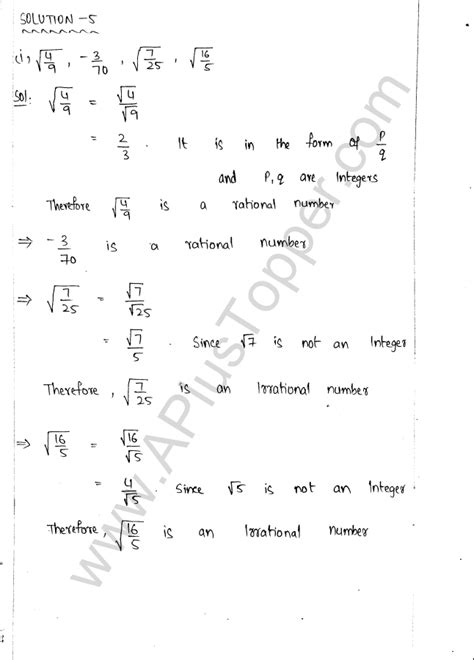 SOLUTION -5
(i) √(4/9) , -3/70 , √(7/25) , √(16/5)
Sol: √(4/9) = √4/√9
= 2/3 . It is in the form of P/q
and P,q are Integers
Therefore √(4/9) is a rational number
⇒ -3/70 is a rational number
⇒ √(7/25) = √7/√25
= √7/5 . Since √7 is not an Integer
Therefore , √(7/25) is an Irrational number
⇒ √(16/5) = √16/√5
= 4/√5 . Since √5 is not an Integer
Therefore, √(16/5) is an Irrational number
www.APlusTopper.com